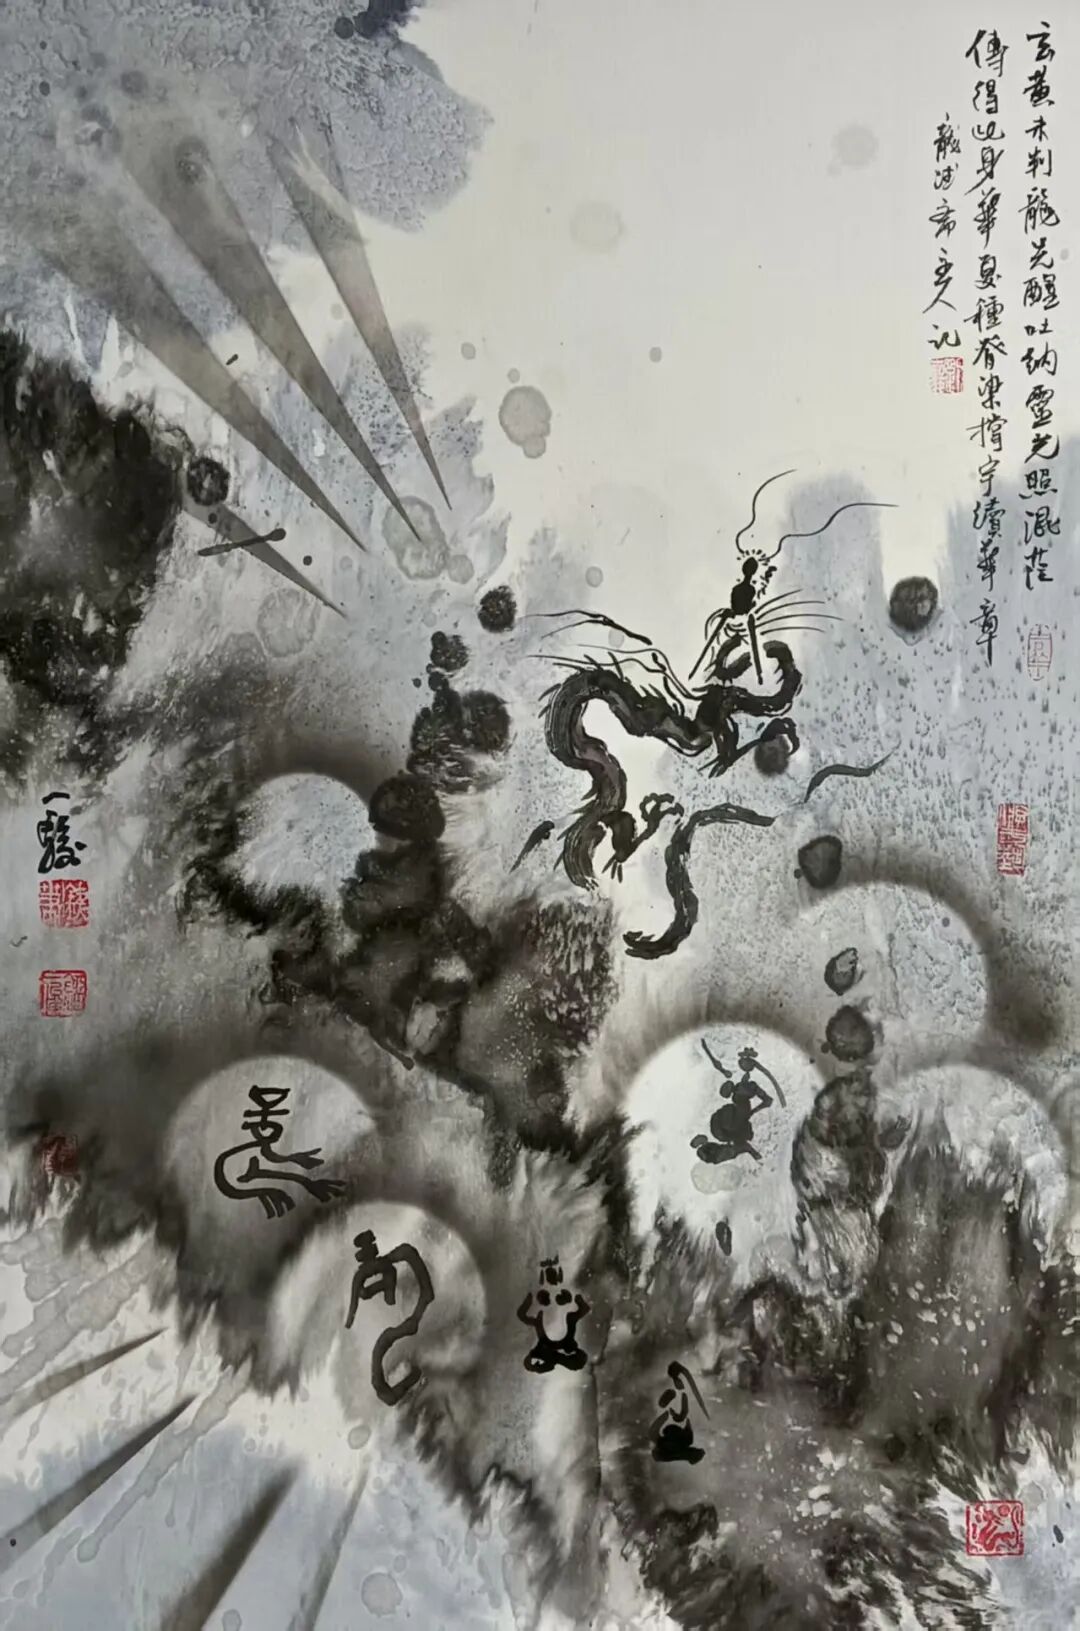 玄黃未判龍先醒吐納靈光照混茫
傳得此身華夏種脊梁撐宇續華章
龍
齋主人記
一駿